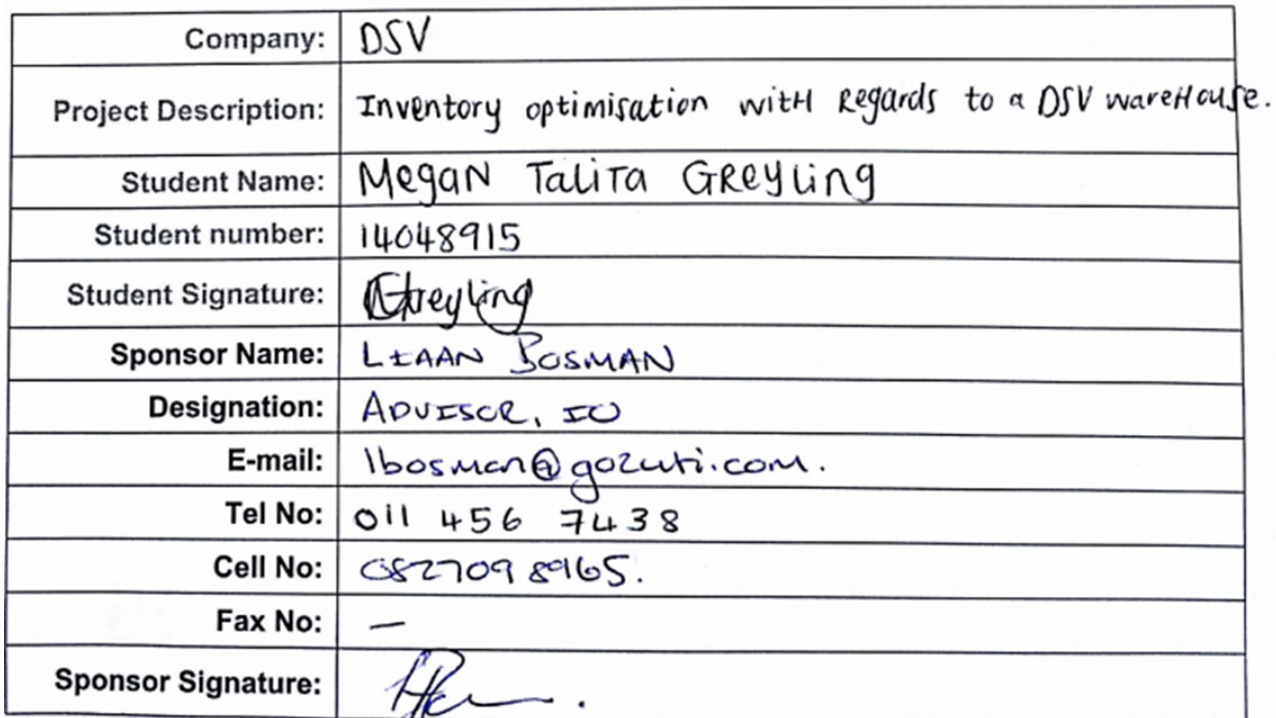 Company: DSV
Project Description: Inventory optimisation with Regards to a DSV wareHouse.
Student Name: Megan Talita Greyling
Student number: 14048915
Student Signature: Greyling
Sponsor Name: LIAAN BOSMAN
Designation: ADVISOR, IO
E-mail: lbosman@go2uti.com.
Tel No: 011 456 7438
Cell No: 0827098965.
Fax No: —
Sponsor Signature: